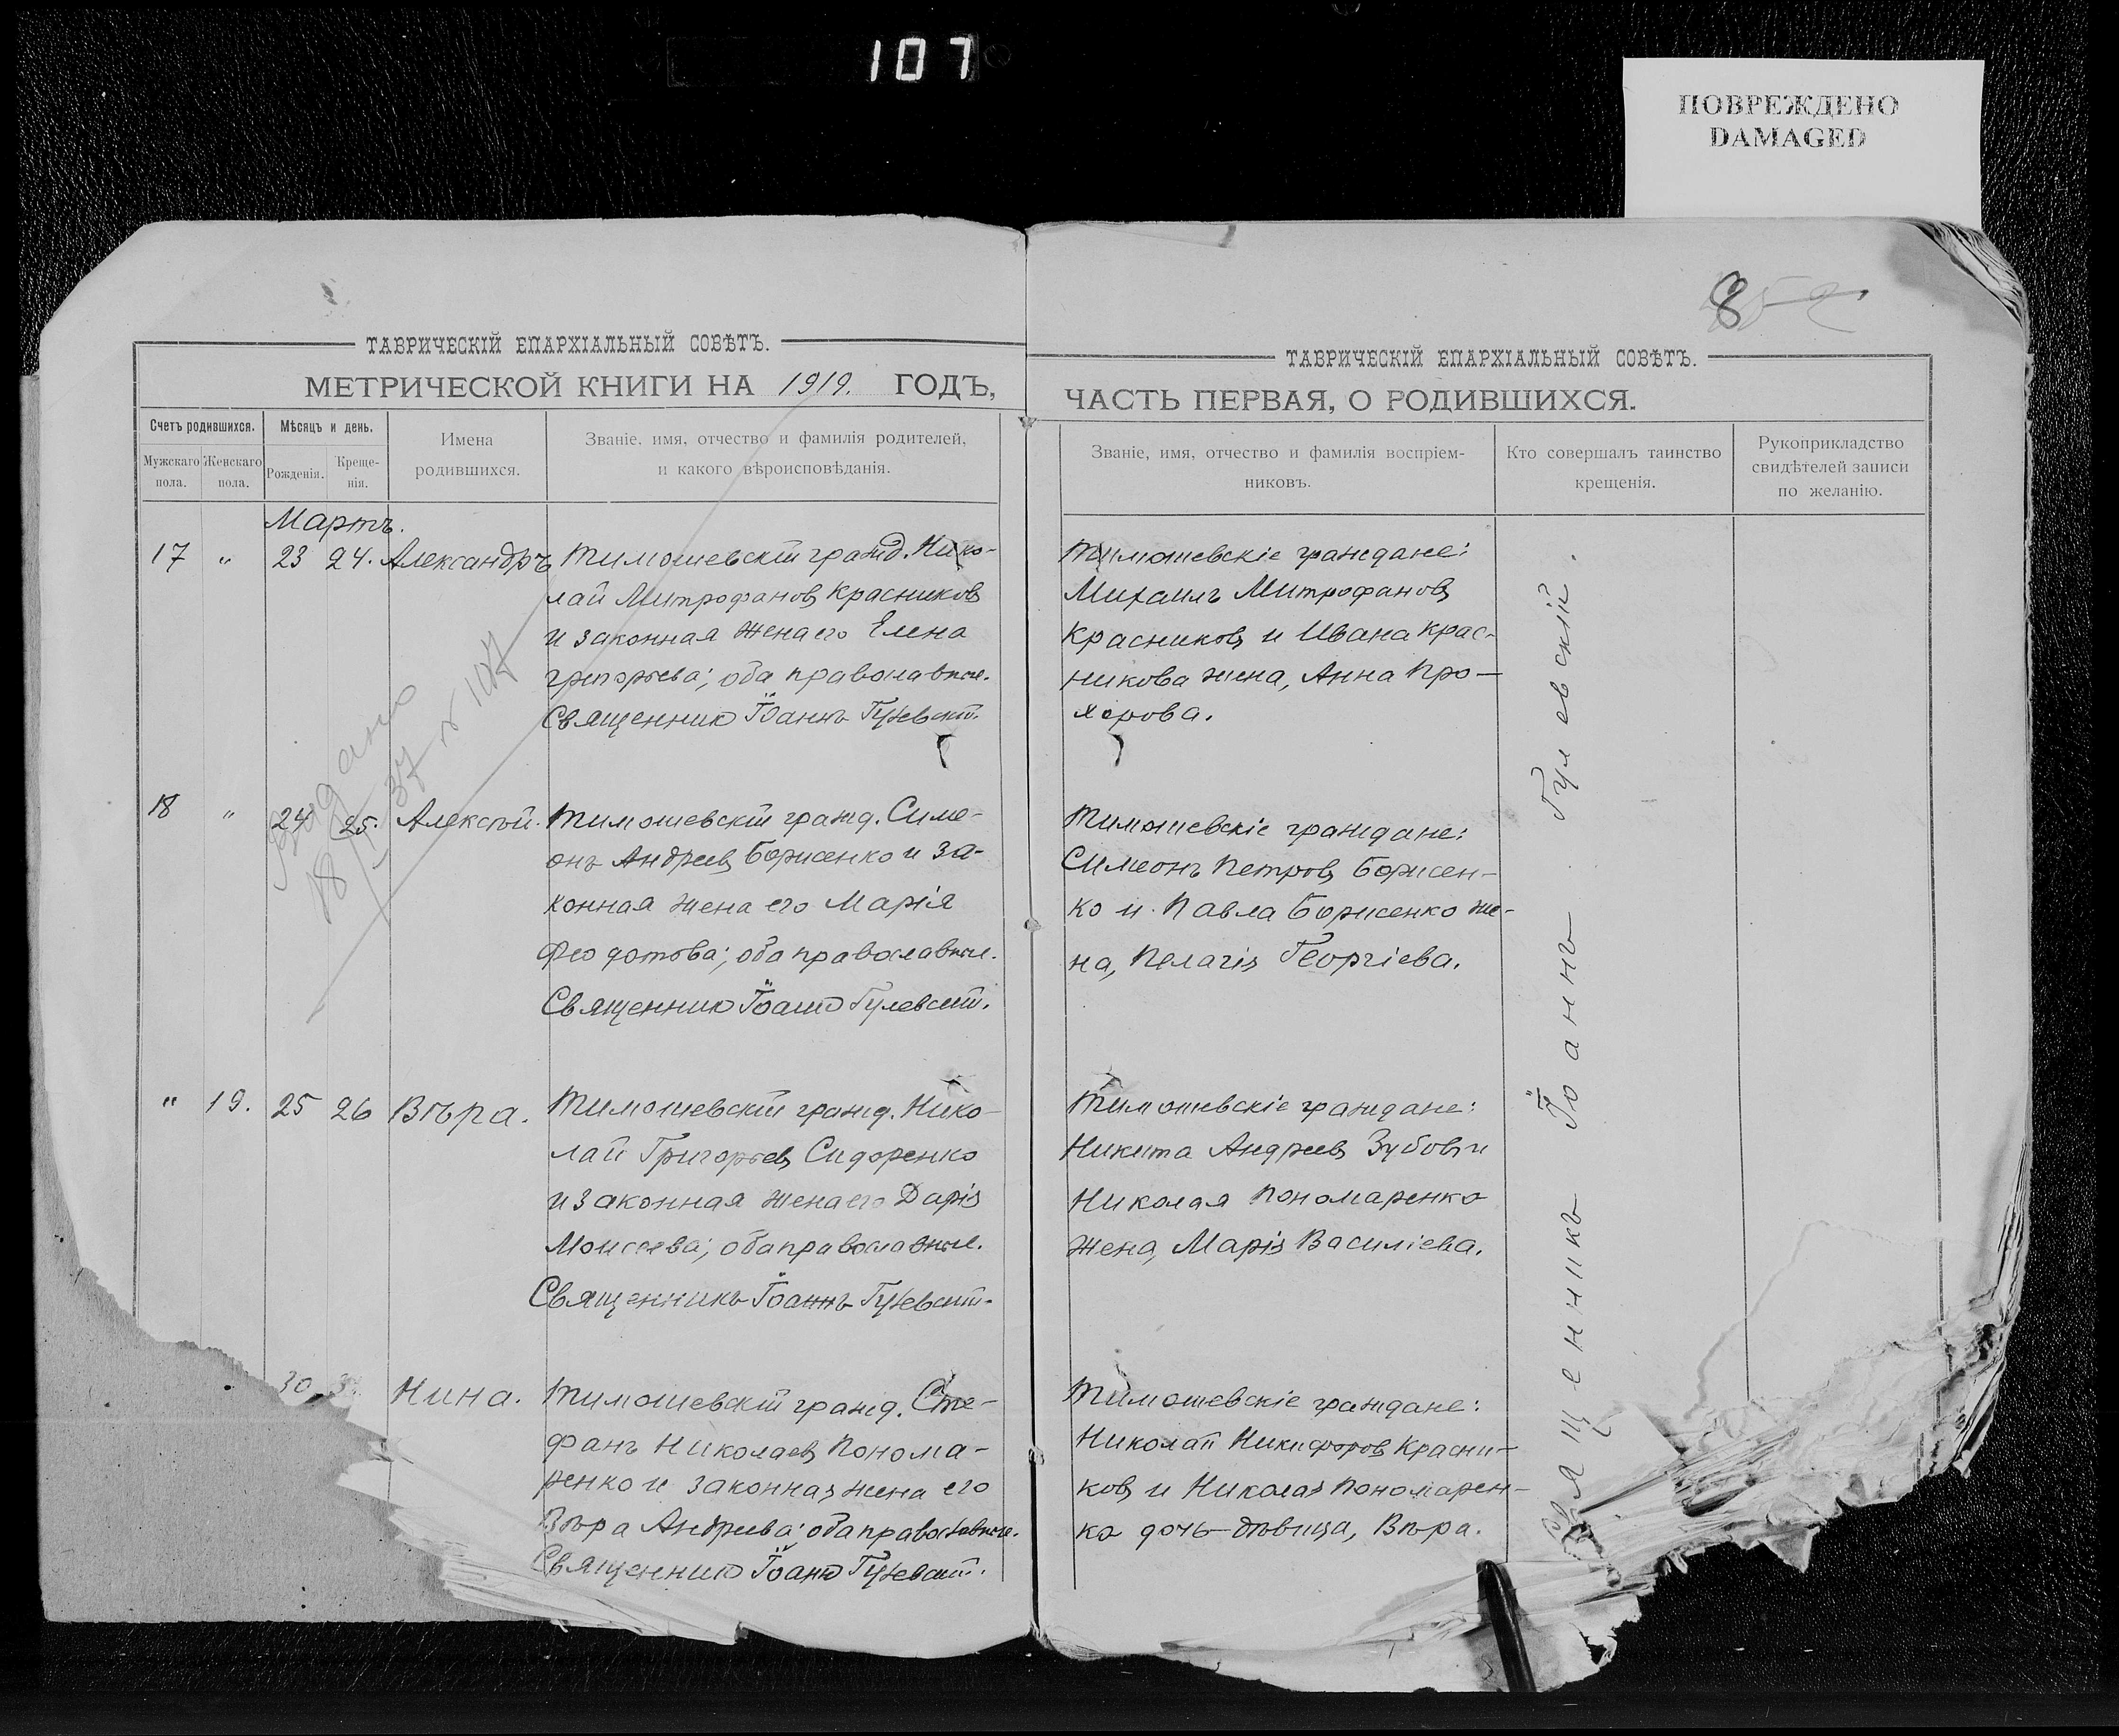 107
ПОВРЕЖДЕНО
DAMAGED
8
ТАВРИЧЕСКІЙ ЕПАРХІАЛЬНЫЙ СОВѢТЪ.
МЕТРИЧЕСКОЙ КНИГИ НА 1919. ГОДЪ,
Счетъ родившихся.
Мѣсяцъ и день.
Имена родившихся.
Званіе, имя, отчество и фамилія родителей,
и какого вѣроисповѣданія.
Мужскаго пола.
Женскаго пола.
Рожденія.
Креще-
нія.
Мартъ.
17 " 23 24. Александръ
Тимошевскій гражд. Нико-
лай Митрофановъ Красниковъ
и законная жена его Елена
Григорьева; оба православные.
Священникъ Іоаннъ Гулевскій.
Выдано
18 " 24 25. Алексѣй.
Тимошевскій гражд. Симе-
онъ Андреевъ Борисенко и за-
конная жена его Марія
Феодотова; оба православные.
Священникъ Іоаннъ Гулевскій.
" 19. 25 26 Вѣра.
Тимошевскій гражд. Нико-
лай Григорьевъ Сидоренко
и законная жена его Дарія
Моисеева; оба православные.
Священникъ Іоаннъ Гулевскій.
30 Нина.
Тимошевскій гражд. Сте-
фанъ Николаевъ Понома-
ренко и законная жена его
Вѣра Андреева; оба православные.
Священникъ Іоаннъ Гулевскій.
ТАВРИЧЕСКІЙ ЕПАРХІАЛЬНЫЙ СОВѢТЪ.
ЧАСТЬ ПЕРВАЯ, О РОДИВШИХСЯ.
Званіе, имя, отчество и фамилія воспріем-
никовъ.
Кто совершалъ таинство
крещенія.
Рукоприкладство
свидѣтелей записи
по желанію.
Тимошевскіе граждане:
Михаилъ Митрофановъ
Красниковъ и Ивана Крас-
никова жена, Анна Про-
хорова.
Тимошевскіе граждане:
Симеонъ Петровъ Борисен-
ко и Павла Борисенко же-
на, Пелагія Георгіева.
Тимошевскіе граждане:
Никита Андреевъ Зубовъ и
Николая Пономаренко
жена, Марія Василіева.
Тимошевскіе граждане:
Николай Никифоровъ Красни-
ковъ и Николая Пономарен-
ко дочь-дѣвица, Вѣра.
Священникъ Іоаннъ Гулевскій.